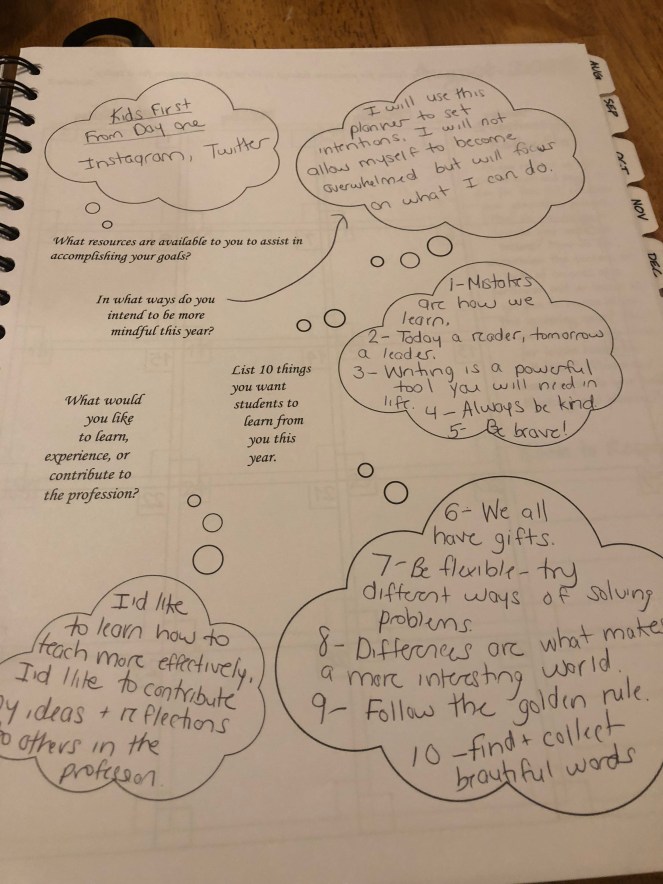 Kids First
From Day one
Instagram, Twitter
What resources are available to you to assist in
accomplishing your goals?
I will use this
planner to set
intentions. I will not
allow myself to become
overwhelmed but will focus
on what I can do.
In what ways do you
intend to be more
mindful this year?
1-Mistakes
are how we
learn.
2- Today a reader, tomorrow
a leader.
3- Writing is a powerful
tool you will need in
life. 4 - Always be kind
5- Be brave!
List 10 things
you want
students to
learn from
you this
year.
6- We all
have gifts.
7-Be flexible - try
different ways of solving
problems.
8- Differences are what makes
a more interesting world.
9- Follow the golden rule.
10 -find + collect
beautiful words
What would
you like
to learn,
experience, or
contribute to
the profession?
I'd like
to learn how to
teach more effectively.
I'd like to contribute
my ideas + reflections
to others in the
profession.
AUG
SEP
OCT
NOV
DEC